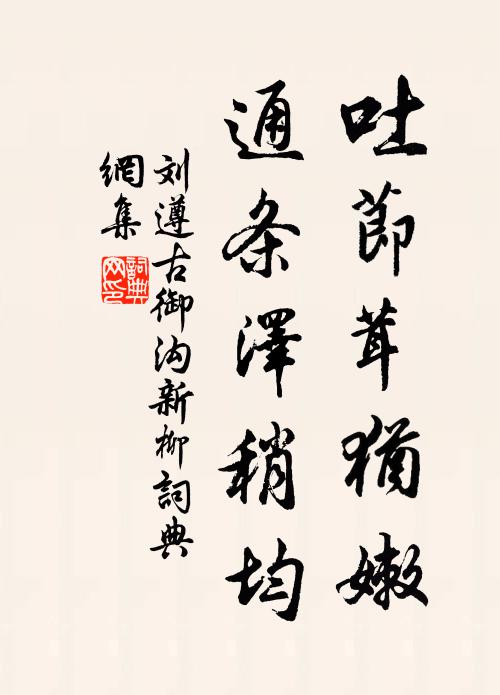 吐節茸猶嫩
通条澤稍均
刘遵古御沟新柳詞典
網集
詞典
网印